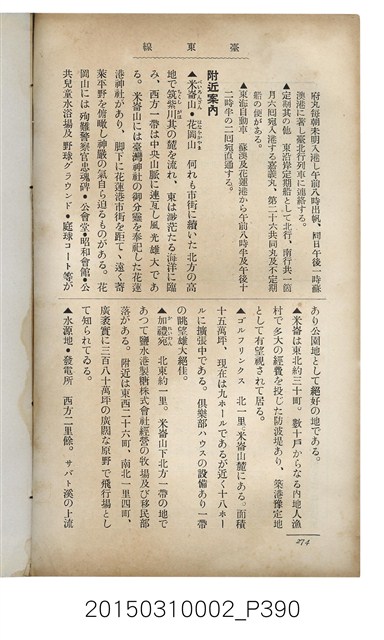 臺東線
府丸每朝未明入港し午前八時出帆、同日午後一時蘇
澳港に著し臺北行列車に連絡する。
▲定期其の他　東沿岸定期船として北行、南行共一箇
月六回宛入港する嘉義丸、第二十六共同丸及不定期
船の便がある。
▲東海自動車　蘇澳及花蓮港から午前八時半及午後十
二時半の二回宛直通する。
附近案內
▲米崙山・花岡山　何れも市街に續いた北方の高
地で筑紫川其の麓を流れ、東は渺茫たる海洋に臨
み、西方一帶は中央山脈に連亙し風光雄大であ
る。米崙山には臺灣神社の御分靈を奉祀した花蓮
港神社があり、脚下に花蓮港市街を距てゝ遠く薺
萊平野を俯瞰し神嚴の氣自ら迫るものがある。花
岡山には殉難警察官忠魂碑・公會堂・昭和會館・公
共兒童水浴場及野球グラウンド・庭球コート等が
あり公園地として絕好の地である。
▲米崙は東北約三十町。數十戶からなる內地人漁
村で多大の經費を投じた防波堤あり、築港豫定地
として有望視されて居る。
▲ゴルフリンクス　北一里、米崙山麓にある。面積
十五萬坪、現在は九ホールであるが近く十八ホー
ルに擴張中である。俱樂部ハウスの設備あり一帶
の眺望雄大絕佳。
▲加禮宛　北東約一里。米崙山下北方一帶の地で
あつて鹽水港製糖株式會社經營の牧場及び移民部
落がある。附近は東西二十六町、南北一里四町、
廣袤實に三百八十萬坪の廣闊な原野で飛行場とし
て知られてゐる。
▲水源地・發電所　西方二里餘。サバト溪の上流
274
20150310002_P390